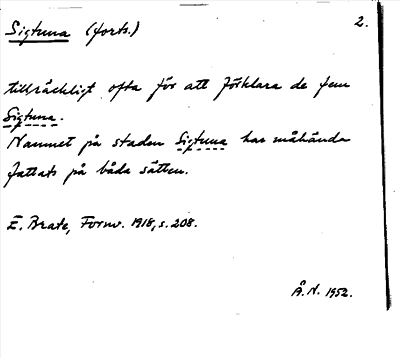 Sigtuna (forts.) 2.
tillräckligt ofta för att förklara de fem
Sigtuna.
Namnet på staden Sigtuna har måhända
fattats på båda sätten.
E. Brate, Fornv. 1918, s. 208.
Å.N. 1952.